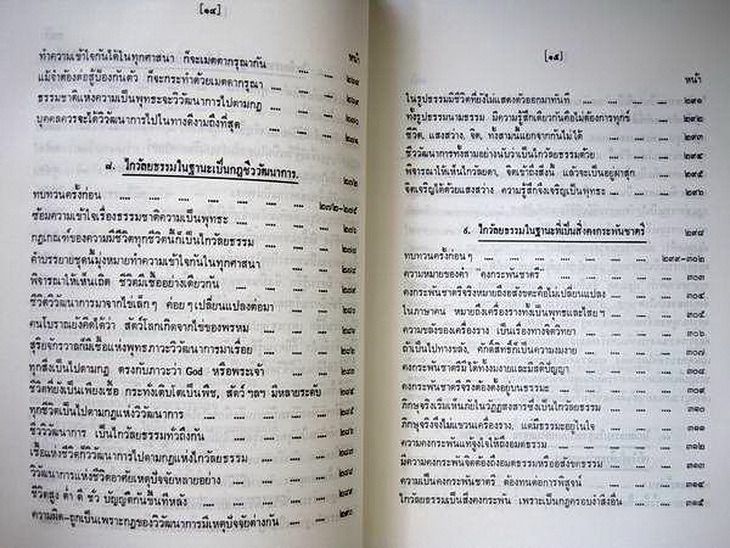 [๑๔]
หน้า
ทำความเข้าใจกันได้ในทุกศาสนา ก็จะเมตตากรุณากัน .... ....
แม้จำต้องต่อสู้ป้องกันตัว ก็จะกระทำด้วยเมตตากรุณา .... ....
ธรรมชาติแห่งความเป็นพุทธะจะวิวัฒนาการไปตามกฎ .... ....
บุคคลควรจะได้วิวัฒนาการไปในทางดีงามถึงที่สุด .... ....
๘. ไกวัลยธรรมในฐานะเป็นกฎชีววิวัฒนาการ.
ทบทวนครั้งก่อน .... .... .... .... .... ....
ซ้อมความเข้าใจเรื่องธรรมชาติความเป็นพุทธะ .... .... ....
กฎเกณฑ์ของความมีชีวิตทุกชีวิตนี้ก็เป็นไกวัลยธรรม .... ....
คำบรรยายชุดนี้มุ่งหมายทำความเข้าใจกันในทุกศาสนา .... ....
พิจารณาให้เห็นเถิด ชีวิตมีเชื้ออย่างเดียวกัน .... ....
ชีวิตวิวัฒนาการมาจากไข่เล็กๆ ค่อยๆ เปลี่ยนแปลงต่อมา ....
คนโบราณยังคิดได้ว่า สัตว์โลกเกิดจากไข่ของพรหม ....
สุริยจักรวาลก็มีเชื้อแห่งพุทธภาวะวิวัฒนาการมาเรื่อย ....
ทุกสิ่งเป็นไปตามกฎ ตรงกับภาวะว่า God หรือพระเจ้า ....
ชีวิตที่ยังเป็นเพียงเชื้อ กระทั่งเติบโตเป็นพืช, สัตว์ ฯลฯ มีหลายระดับ
ทุกชีวิตเป็นไปตามกฎแห่งวิวัฒนาการ .... .... ....
ชีววิวัฒนาการ เป็นไกวัลยธรรมทั่วถึงกัน .... .... ....
เชื้อแห่งชีวิตก็วิวัฒนาการไปตามกฎแห่งไกวัลยธรรม .... ....
วิวัฒนาการแห่งชีวิตอาศัยเหตุปัจจัยหลายอย่าง .... ....
ชีวิตสูง ต่ำ ดี ชั่ว บัญญัติกันขึ้นทีหลัง .... .... ....
ความผิด-ถูกเป็นเพราะกฎของวิวัฒนาการมีเหตุปัจจัยต่างกัน .... ๒๙๐
[๑๕]
หน้า
ในรูปธรรมมีชีวิตที่ยังไม่แสดงตัวออกมาทันที .... .... .... ๒๙๑
ทั้งรูปธรรมนามธรรม มีความรู้สึกเดียวกันคือไม่ต้องการทุกข์ .... ๒๙๒
ชีวิต, แสงสว่าง, จิต, ทั้งสามนี้แยกจากกันไม่ได้ .... .... ๒๙๓
ชีววิวัฒนาการทั้งสามอย่างนับว่าเป็นไกวัลยธรรมด้วย .... .... ๒๙๔
พิจารณาให้เห็นไกวัลยตา, จิตเข้าถึงสิ่งนี้ แล้วจะเป็นอยู่ผาสุก .... ๒๙๕
จิตเจริญได้ด้วยแสงสว่าง ความรู้สึกจึงเจริญเป็นพุทธะ .... .... ๒๙๖
๙. ไกวัลยธรรมในฐานะที่เป็นสิ่งคงกระพันชาตรี ๒๙๘
ทบทวนครั้งก่อนๆ .... .... .... .... .... ๒๙๙-๓๐๒
ความหมายของคำ "คงกระพันชาตรี" .... .... .... ๓๐๓
คงกระพันชาตรีจริงหมายถึงอสังขตะคือไม่เปลี่ยนแปลง .... .... ๓๐๔
ในภาษาคน หมายถึงเครื่องรางทั้งเป็นพุทธและไสยฯ .... .... ๓๐๕
ความขลังของเครื่องราง เป็นเรื่องทางจิตวิทยา .... .... ๓๐๖
ถ้าเป็นไปทางขลัง, ศักดิ์สิทธิ์ก็เป็นความงมงาย .... .... ๓๐๗
คงกระพันชาตรีมีได้ทั้งงมงายและมีสติปัญญา .... .... ๓๐๘
คงกระพันชาตรีจริงต้องตั้งอยู่บนธรรมะ .... .... .... ๓๐๙
ภิกษุจริงเริ่มเห็นภัยในวัฏฏสงสารซึ่งเป็นไกวัลยธรรม .... .... ๓๑๐
ภิกษุจริงจึงไม่แขวนเครื่องราง, แต่มีธรรมะอยู่ในใจ .... .... ๓๑๑
ความคงกระพันแท้จูงใจให้ถึงอมตธรรม .... .... .... ๓๑๒
มีความคงกระพันจิตต้องถึงอมตธรรมหรืออสังขตธรรม .... .... ๓๑๓
ความเป็นคงกระพันชาตรี ต้องทนต่อการพิสูจน์ .... .... ๓๑๔
ไกวัลยธรรมเป็นสิ่งคงกระพัน เพราะเป็นกฎครอบงำสิ่งอื่น .... ๓๑๕